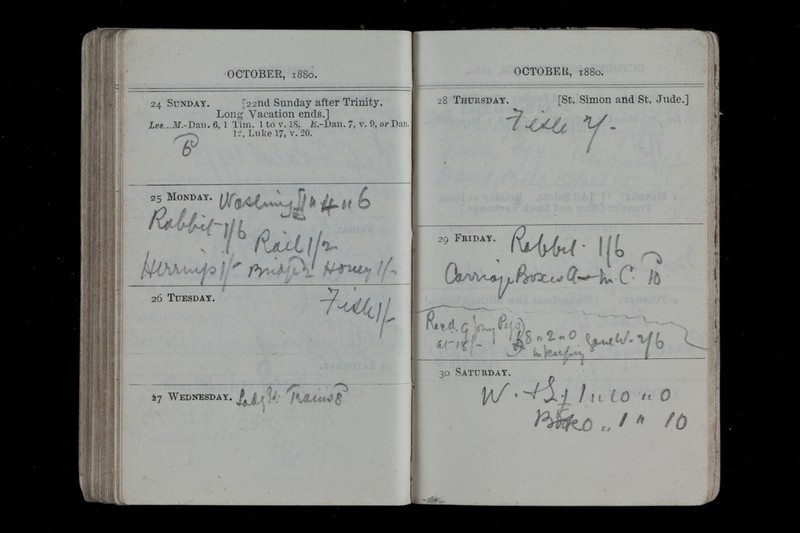 OCTOBER, 1880.
24 SUNDAY. [22nd Sunday after Trinity.
Long Vacation ends.]
Les...M.-Dan. 6, 1 Tim. 1 to v. 18. E.-Dan. 7, v. 9, or Dan.
12, Luke 17, v. 20.
6
25 MONDAY. Washing 4 " 6
Rabbit 1/6
Rail 1/2
Herrings 1/- Honey 1/-
26 TUESDAY. Fish 1/-
27 WEDNESDAY. Trains 8
OCTOBER, 1880.
28 THURSDAY. [St. Simon and St. Jude.]
Fish 2/-
29 FRIDAY. Rabbit 1/6
Carriage Boxes 10
Recd. 9
at 18/- 8 " 2 " 0 Jane W. 2/6
in keeping
30 SATURDAY.
W. + S 1 " 10 " 0
" 1 " 10